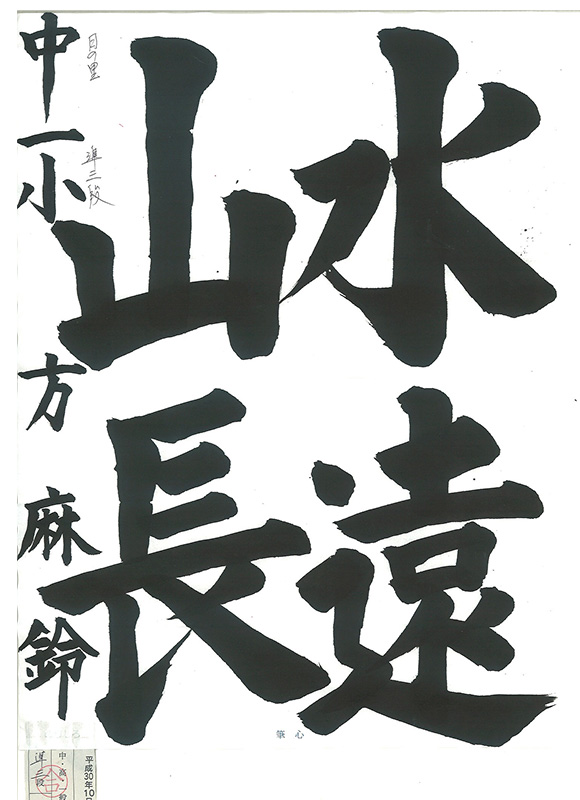 水遠
山長
日の里 準三段
中一 小方麻鈴
筆心
平成30年10
中・高・
準三段